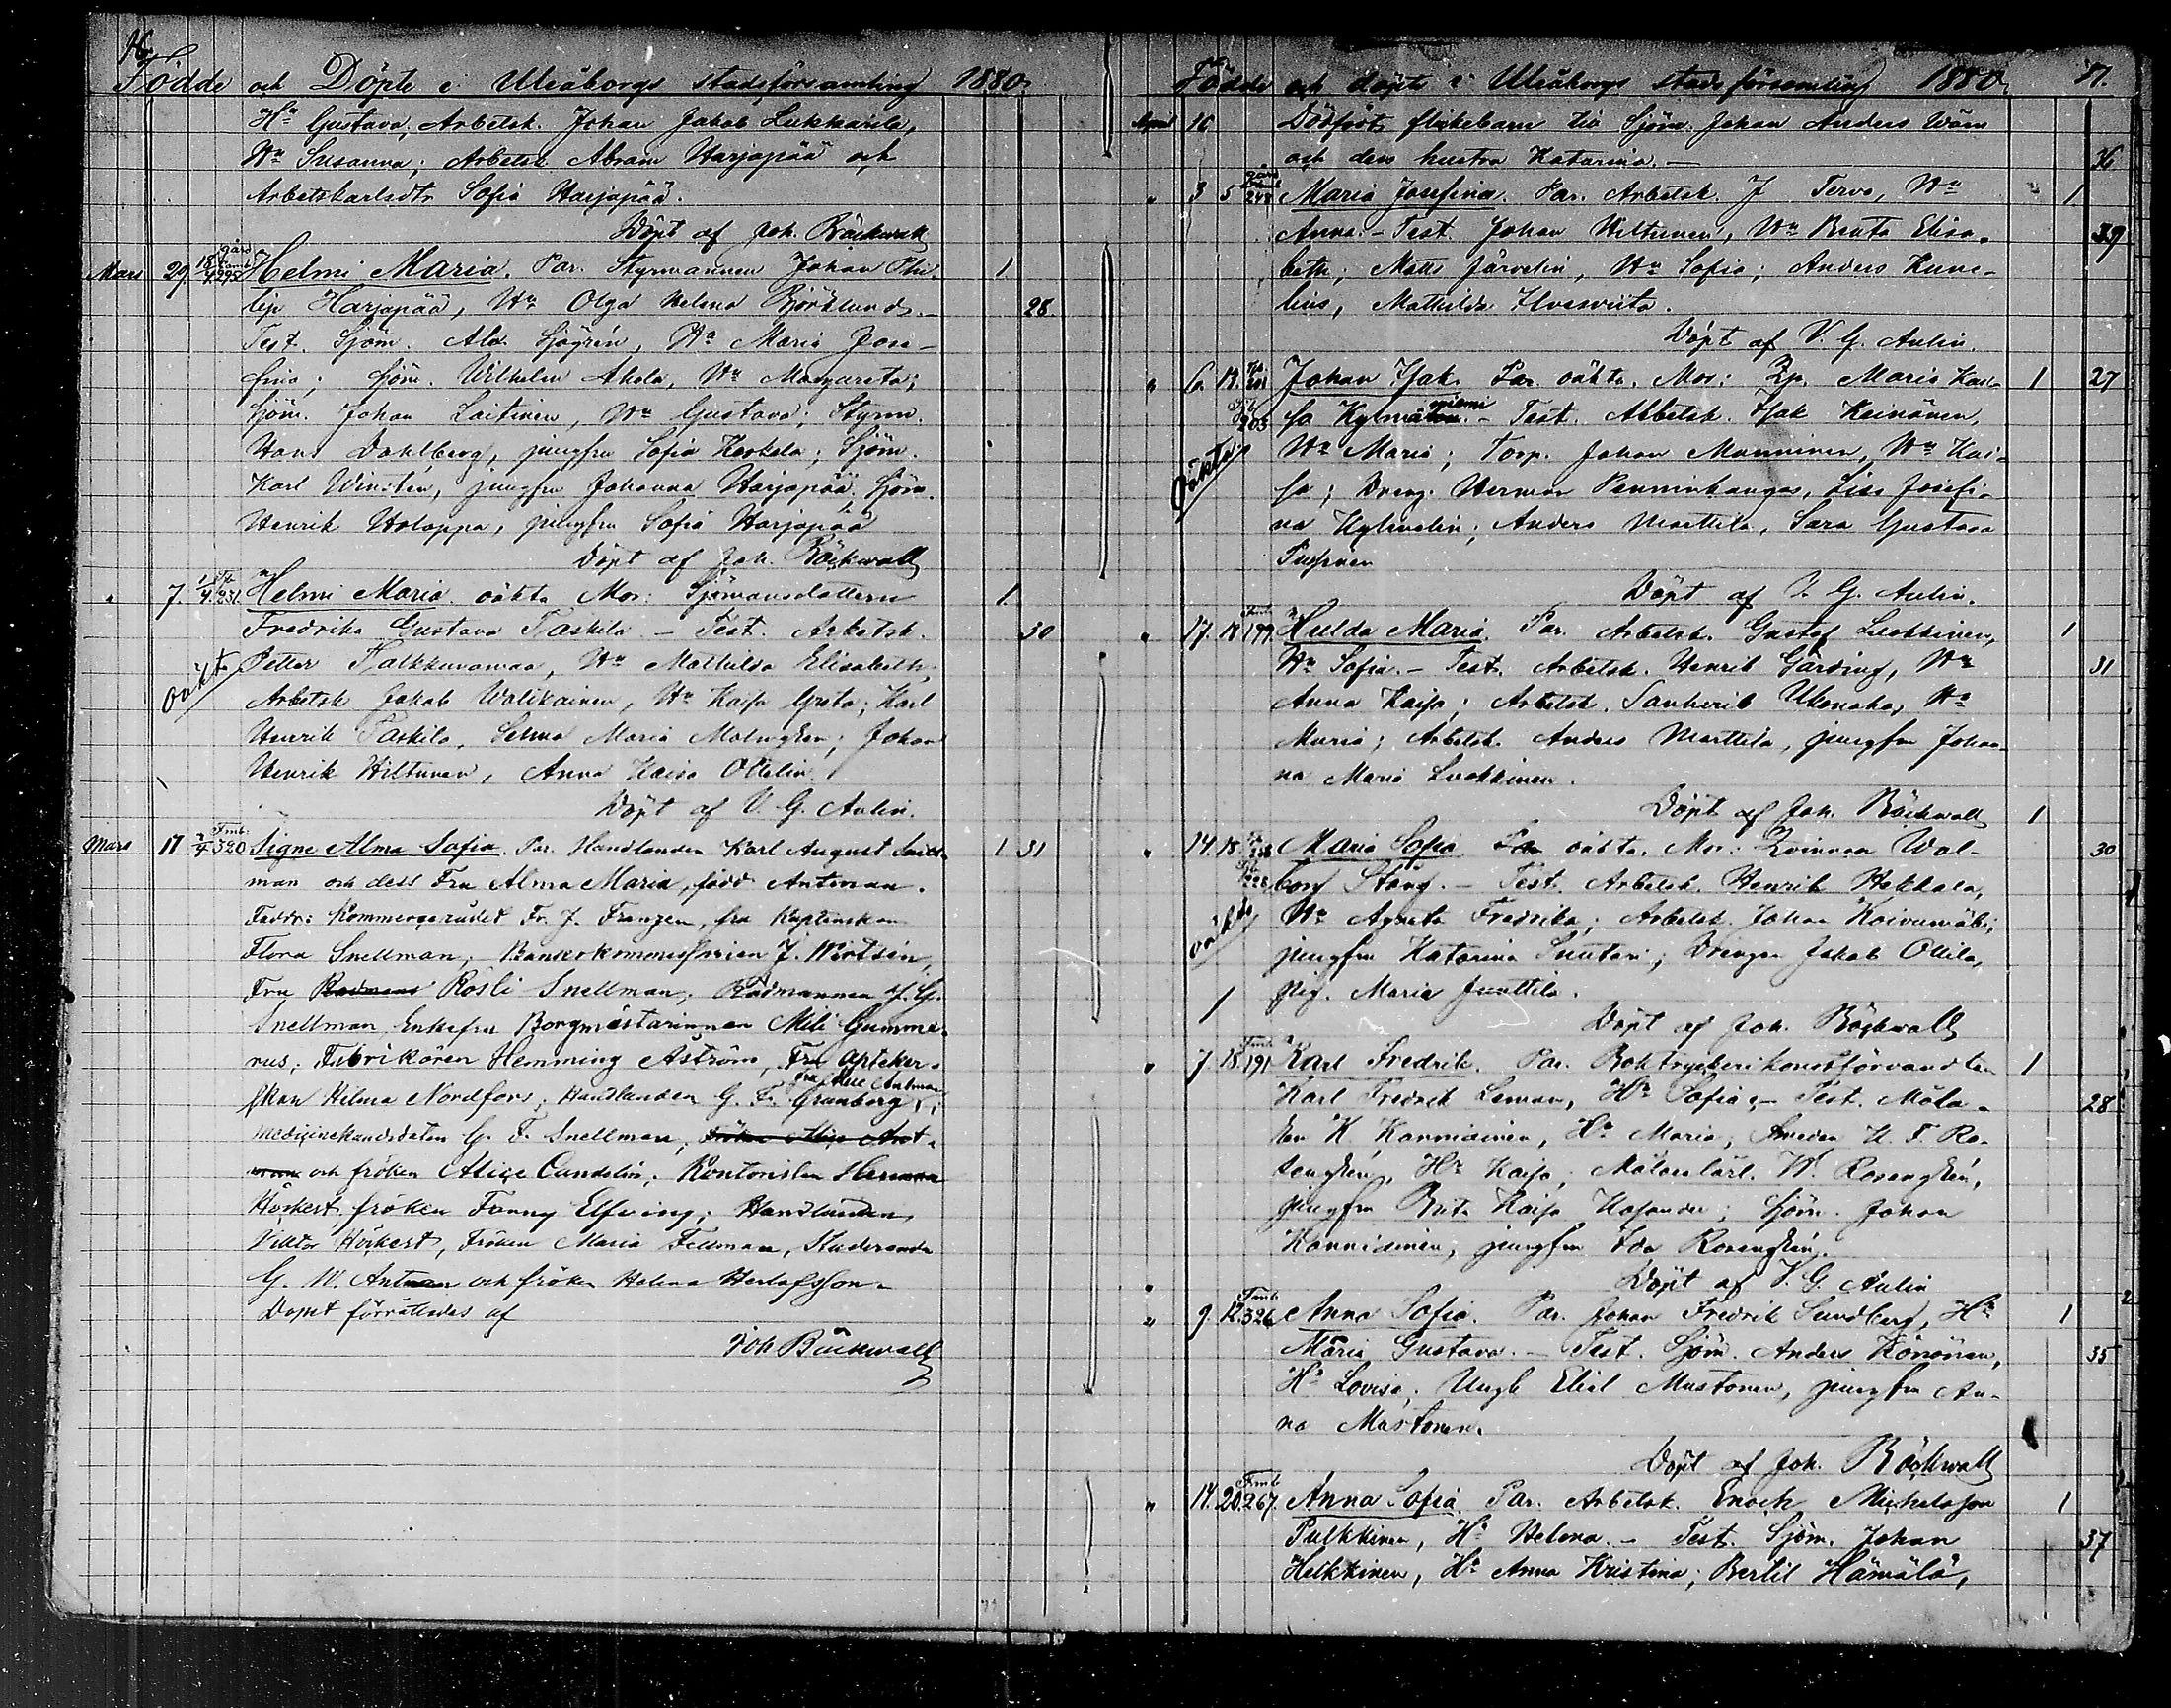 16.
Födde och Döpte i Uleåborgs stadsförsamling 1880.
Hu Gustava, Arbetsk. Johan Jakob Lukkarila,
Hu Susanna; Arbetsk Abram Harjapää och
Arbetskarlsdtr Sofia Harjapää.
Döpt af Joh. Bäckwall
Mars 29. 18/4 295 Helmi Maria. Par. Styrmannen Johan Phi- 1
lip Harjapää, Hu Olga Helena Björklund. 28
Test. Sjöm. Alex. Sjögrén, Hu Maria Jose-
fina; Sjöm. Wilhelm Ahola, Hu Margareta;
Sjöm. Johan Laitinen, Hu Gustava; Styrm.
Hans Dahlberg, jungfru Sofia Keskela; Sjöm.
Karl Winsten, jungfru Johanna Harjapää. Sjöm.
Henrik Holappa, jungfru Sofia Harjapää
Döpt af Joh. Bäckwall
" 7. 1/4. 231. Helmi Maria. oäkta Mor: Sjömansdottern 1.
Fredrika Gustava Taskila. - Test. Arbetsk. 30
oäkta Petter Halkkuamaa, Hu Mathilda Elisabeth,
Arbetsk Jakob Walikainen, Hu Kaisa Greta; Karl
Henrik Taskila, Selma Maria Malmgren; Johan
Henrik Hiltunen, Anna Kaisa Ollelin.
Döpt af V. G. Aulin.
Mars 17 2/4 Fmb. 320 Signe Alma Sofia. Par. Handlanden Karl August Snell- 1 31
man och dess Fru Alma Maria, född Antman.
Faddr: Kommerserådet Fr. J. Franzen, fru Kaptenskan
Flora Snellman; Bankokommissarien J. Wirtsén,
Fru Rådmans Rosli Snellman; Rådmannen J. G.
Snellman Enkefru Borgmästarinnan Mili Gumme-
rus; Fabrikören Hemming Aström, Fru Apteker-
skan Hilma Nordfors; Handlanden G. Fr. Granberg, fru Antman;
Medicinekandidaten G. F. Snellman, fröken Alip Ant-
man och fröken Alice Candelin; Kontoristen Herman
Höckert, fröken Fanny Elfving; Handlanden
Viktor Höckert, Fröken Maria Fellman, Studerande
G. W. Antman och fröken Helena Herlofsson.
Dopet förrättades af
Joh Bäckwall
Födde och döpte i Uleåborgs stadsförsamling 1880. 17.
April 16 Dödfödt flickebarn till Sjöm. Johan Anders Wäm
och dess hustru Katarina. - 36
" 3 5 248 Maria Josefina. Par. Arbetsk. J Tervo, Hu 1
Anna. - Test. Johan Hiltunen, Hu Brita Elisa- 39
beth; Matts Järvelin, Hu Sofia; Anders Kune-
lius, Mathilda Ilvesviita.
Döpt af V. G. Aulin.
" 6. 13. 201 Johan Isak. Par. oäkta. Mor: Pig. Maria Kai- 1 27
203 sa Kylmäniemi. - Test. Arbetsk. Isak Keinänen,
oäkta Hu Maria; Torp. Johan Manninen, Hu Kai-
sa; Dreng. Herman Penninkangas, Lisa Josefi-
na Kylmelin; Anders Marttila, Sara Gustava
Döpt af V. G. Aulin.
" 17. 18 Fmb 199. Hulda Maria. Par. Arbetsk. Gustaf Luokkinen, 1
Hu Sofia. - Test. Arbetsk. Henrik Gärding, Hu 31
Anna Kaisa; Arbetsk. Sanherib Ukonaho, Hu
Maria; Arbetsk. Anders Marttila, jungfru Johan-
na Maria Luokkinen.
Döpt af Joh. Bäckwall 1
" 14. 18 Maria Sofia Par oäkta. Mor: Kvinnan Wal- 30
borg Stång. - Test. Arbetsk. Henrik Hakkala,
oäkta Hu Agneta Fredrika; Arbetsk. Johan Koivumäki;
jungfru Katarina Suutari; Drengen Jakob Ollila,
pig. Maria Junttila.
Döpt af Joh. Bäckwall
" 7 18 Fmb 191 Karl Fredrik. Par. Boktryckerikonstförvandten 1
Karl Fredrik Leman, Hu Sofia. - Test. Måla- 28
ren K. Kanniainen, Hu Maria; Smeden K. F. Ro-
sengrén, Hu Kaisa; Målarelärl. W. Rosengrén,
jungfru Brita Kaisa Kasander; Sjöm. Johan
Kanniainen, jungfru Ida Rosengrén.
Döpt af V. G. Aulin
" 9. 12. Fmb 326 Anna Sofia. Par. Johan Fredrik Sundberg, Hu 1
Maria Gustava. - Test. Sjöm. Anders Könönen, 35
Hu Lovisa; Ungk Eliel Mustonen, jungfru An-
na Mustonen.
Döpt af Joh. Bäckwall
" 14. 20. Fmb 267. Anna Sofia. Par. Arbetsk. Enock Michelsson 1
Pulkkinen, Hu Helena. - Test. Sjöm. Johan 37
Heikkinen, Hu Anna Kristina; Bertil Hämälä,